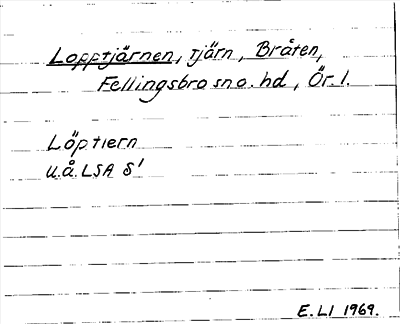 Lopptjärnen, tjärn, Bråten,
Fellingsbro sn o. hd, Ör. l.
Löptiern
u.å. LSA S'
E.LI 1969.